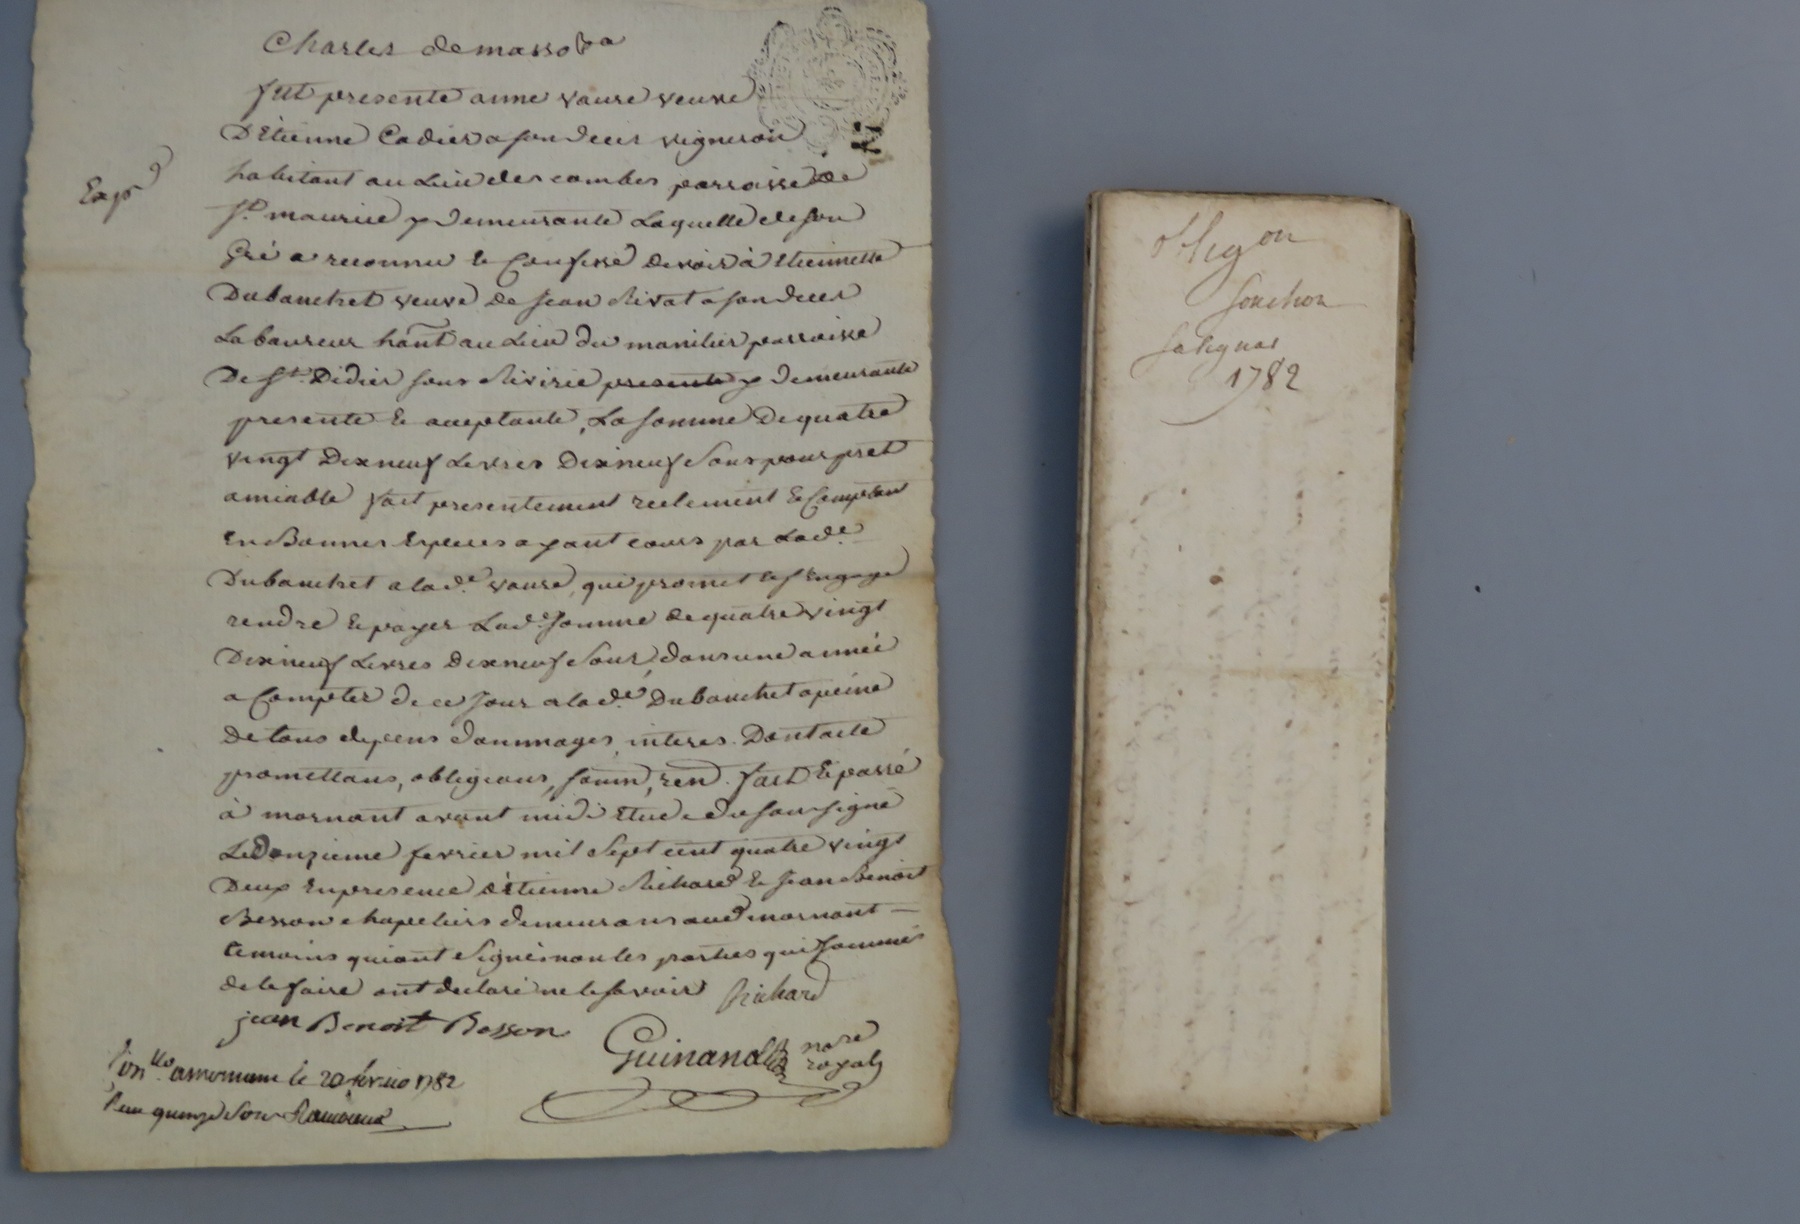 Charles demasso
fut presente anne vaure veuve
D'Etienne Cadier a son deces vigneron
habitant au Lieu des combes parroisse de
St. maurice y demeurante Laquelle de son
Gré a reconnu & Confessé devoir à Etiennette
Dubanchet veuve de Jean Rivat a son deces
Laboureur hant au Lieu du manilier parroisse
De St. Didier sous Rivirie presente y demeurante
presente & acceptante, La somme De quatre
vingt Dixneuf Livres Dixneuf Sous pour pret
amiable fait presentement reelement & Comptant
En Bonnes Especes ayant cours par Lade.
Dubanchet a lade. vaure, qui promet & s'Engage
rendre & payer Lade. somme de quatre vingt
Dixneuf Livres dixneuf Sous, dans une année
a Compter de ce Jour a lade. Dubanchet a peine
De tous depens dommages interes. Dont acte
promettans, obligeans, soum, ren. fait & passé
à mornant avant midi Etude du soussigné
Le Douzieme fevrier mil Sept cent quatre vingt
Deux En presence d'Etienne Richard & Jean Benoit
Besson chapeliers demeurans aud mornant
temoins qui ont Signé non les parties qui sommés
de le faire ont declaré ne le savoir Richard
jean Benoit Besson
Guinand nore
royal
Exp
le 20 fevrier 1782
quinze Sous
obligon
Jonchon
Salignac
1782